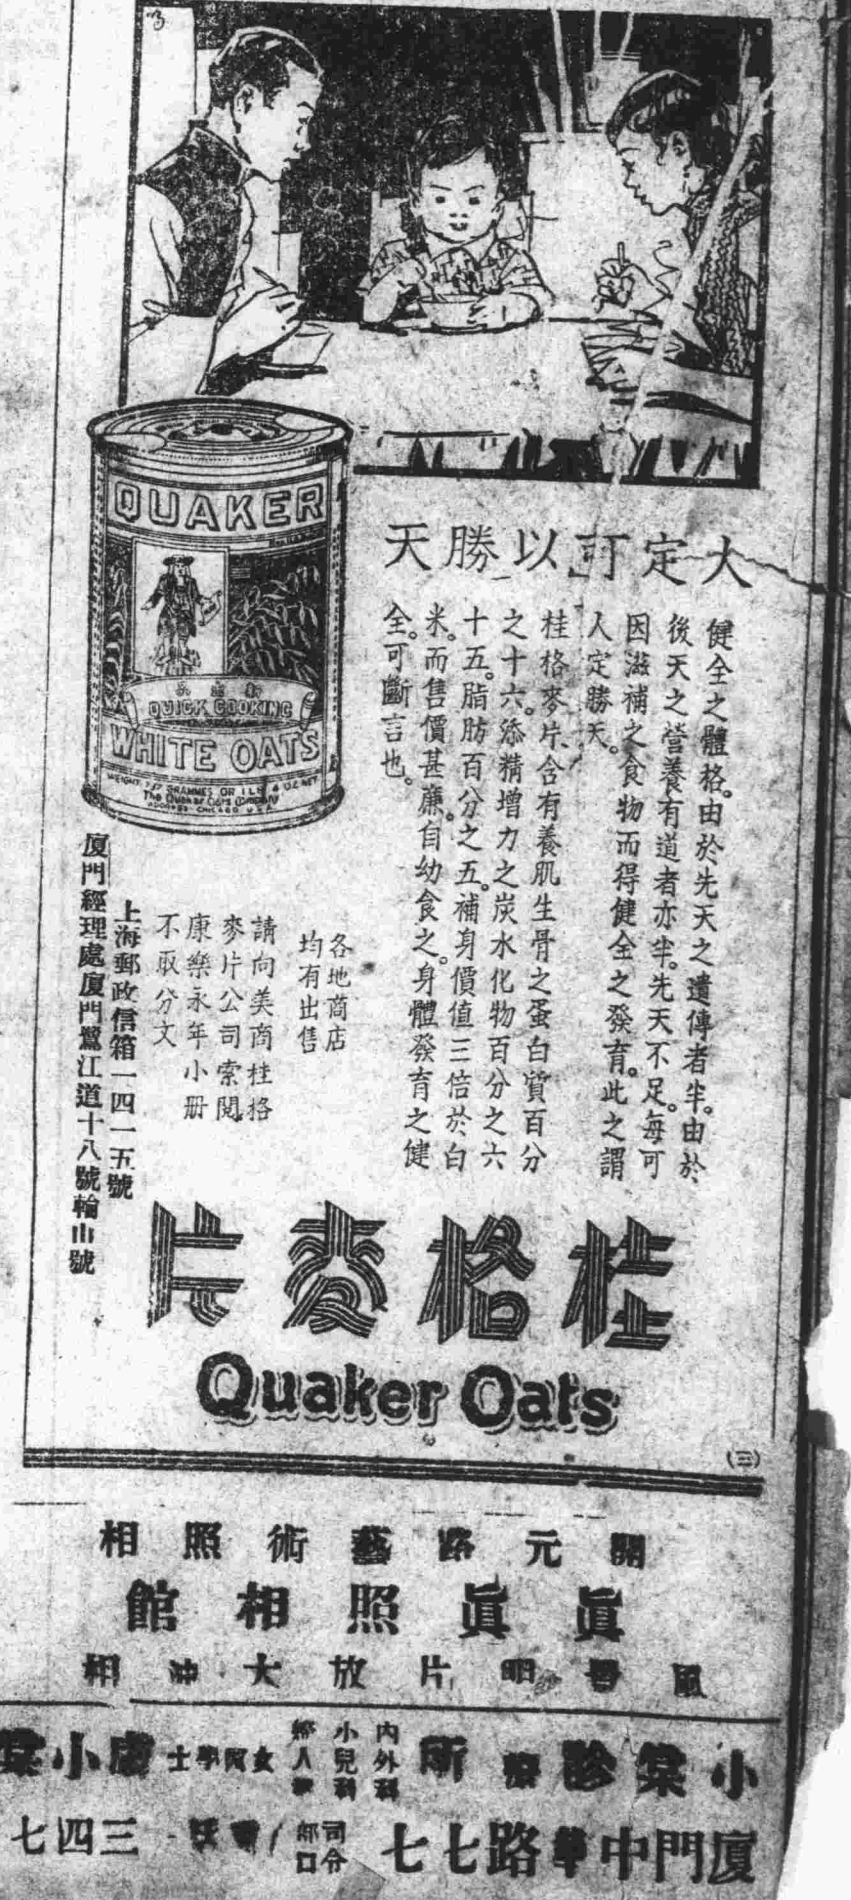 QUAKER
QUICK COOKING
WHITE OATS
The Quaker Oats Company
ADDRESS CHICAGO U.S.A.
人定可以勝天
健全之體格。由於先天之遺傳者半。由於
後天之營養有道者亦半。先天不足。每可
因滋補之食物而得健全之發育。此之謂
人定勝天。
桂格麥片、含有養肌生骨之蛋白質百分
之十六。添精增力之炭水化物百分之六
十五。脂肪百分之五。補身價值三倍於白
米。而售價甚廉。自幼食之。身體發育之健
全。可斷言也。
各地商店
均有出售
請向美商桂格
麥片公司索閱
康樂永年小册
不取分文
上海郵政信箱一四一五號
廈門經理處廈門鷺江道十八號輪山號
桂格麥片
Quaker Oats
(三)
開元路藝術照相
眞眞照相館
片放大
小棠診療所
內外科
小兒科
婦人
小棠
廈門中華路七七
司令
部口
三四七